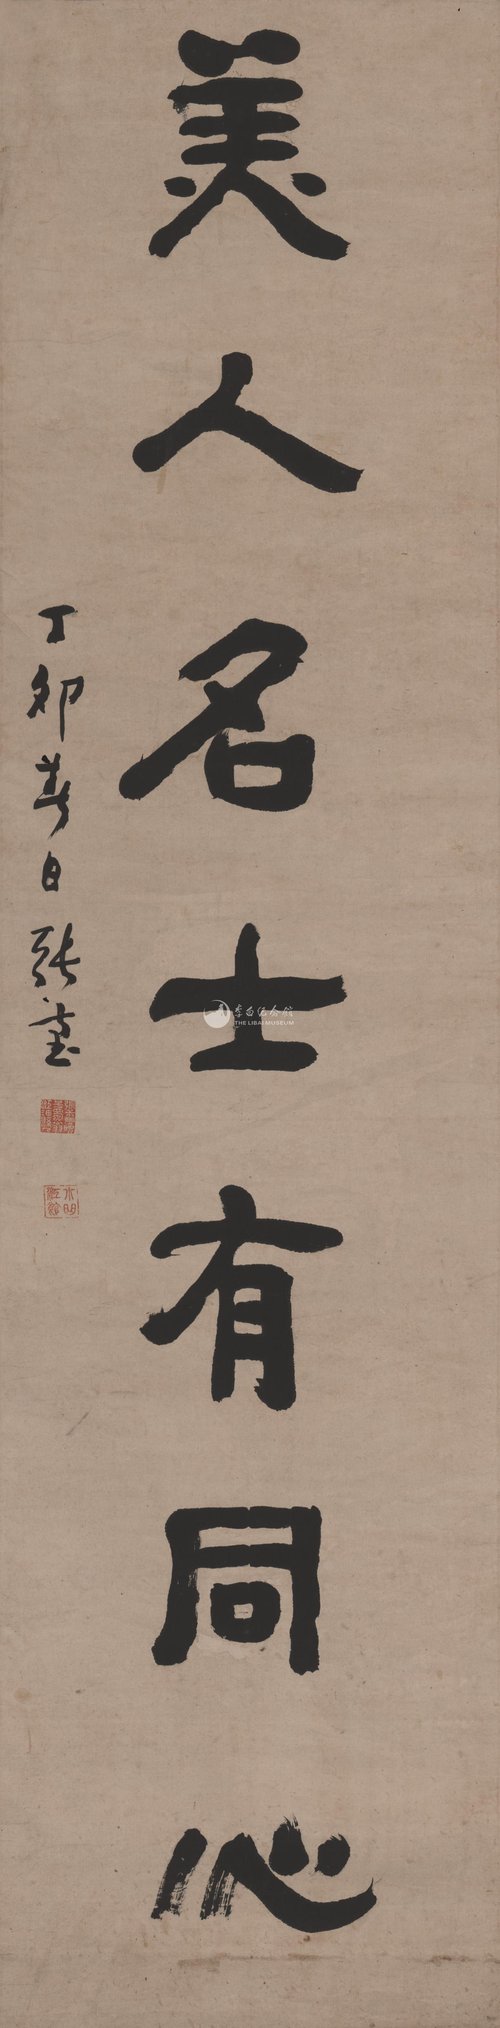 美人名士有同心
丁卯春日張
李白紀念館
THE LIBAI MUSEUM